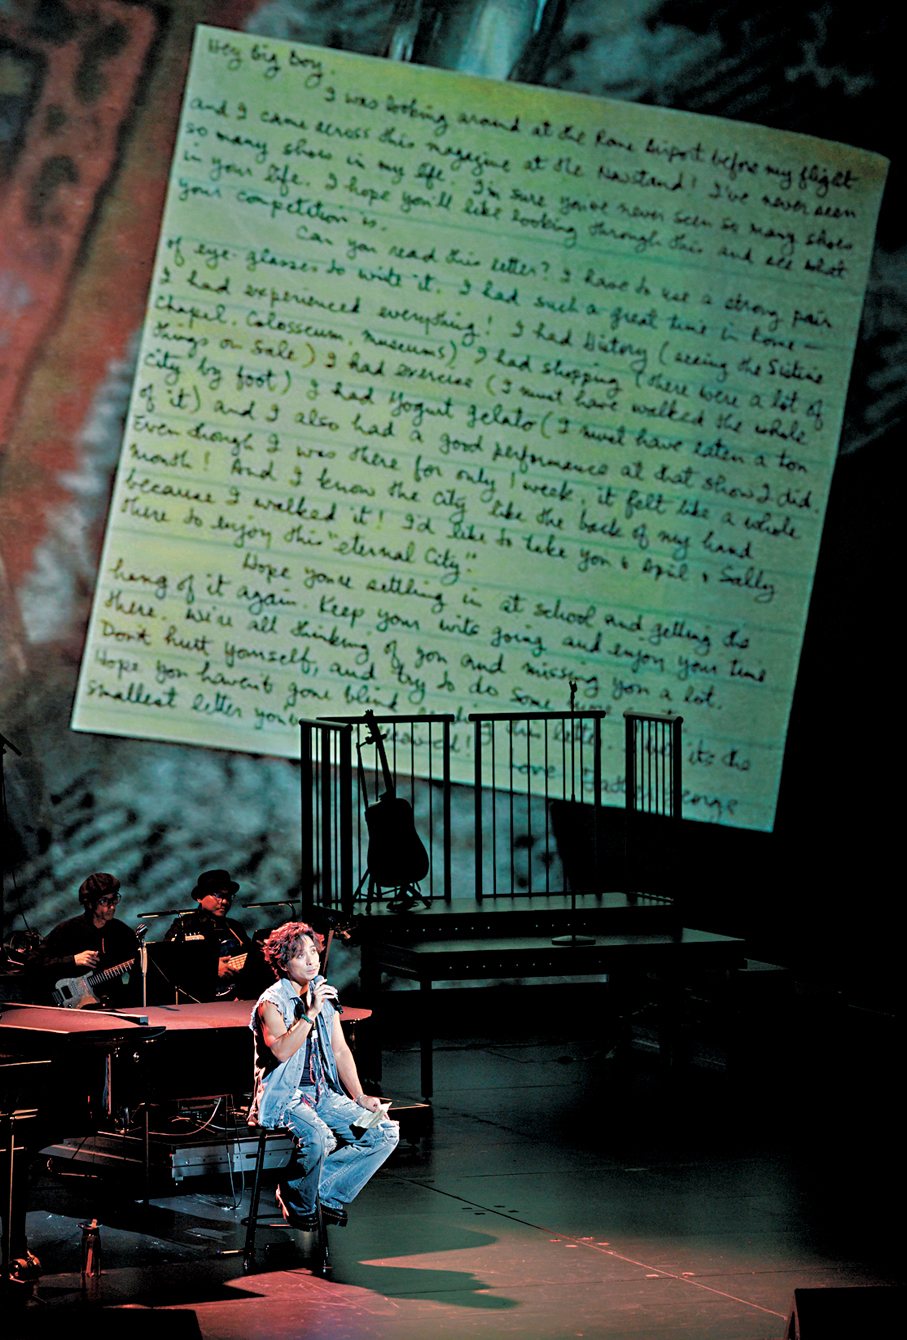 Hey Big Boy,
I was looking around at the Rome Airport before my flight
and I came across this magazine at the Newstand! I've never seen
so many shoes in my life. I'm sure you've never seen so many shoes
in your life. I hope you'll like looking through this and see what
your competition is.
Can you read this letter? I have to use a strong pair
of eye-glasses to write it. I had such a great time in Rome—
I had experienced everything! I had History (seeing the Sistine
Chapel, Colosseum, Museums) I had shopping (there were a lot of
things on Sale) I had exercise (I must have walked the whole
City by foot) I had Yogurt Gelato (I must have eaten a ton
of it) and I also had a good performance at that show I did
Even though I was there for only 1 week, it felt like a whole
month! And I know the City like the back of my hand
because I walked it! I'd like to take you & April & Sally
there to enjoy this "eternal City."
Hope you're settling in at school and getting the
hang of it again. Keep your wits going and enjoy your time
there. We're all thinking of you and missing you a lot.
Don't hurt yourself, and try to do some
Hope you haven't gone blind this letter. it's the
smallest letter
Love,